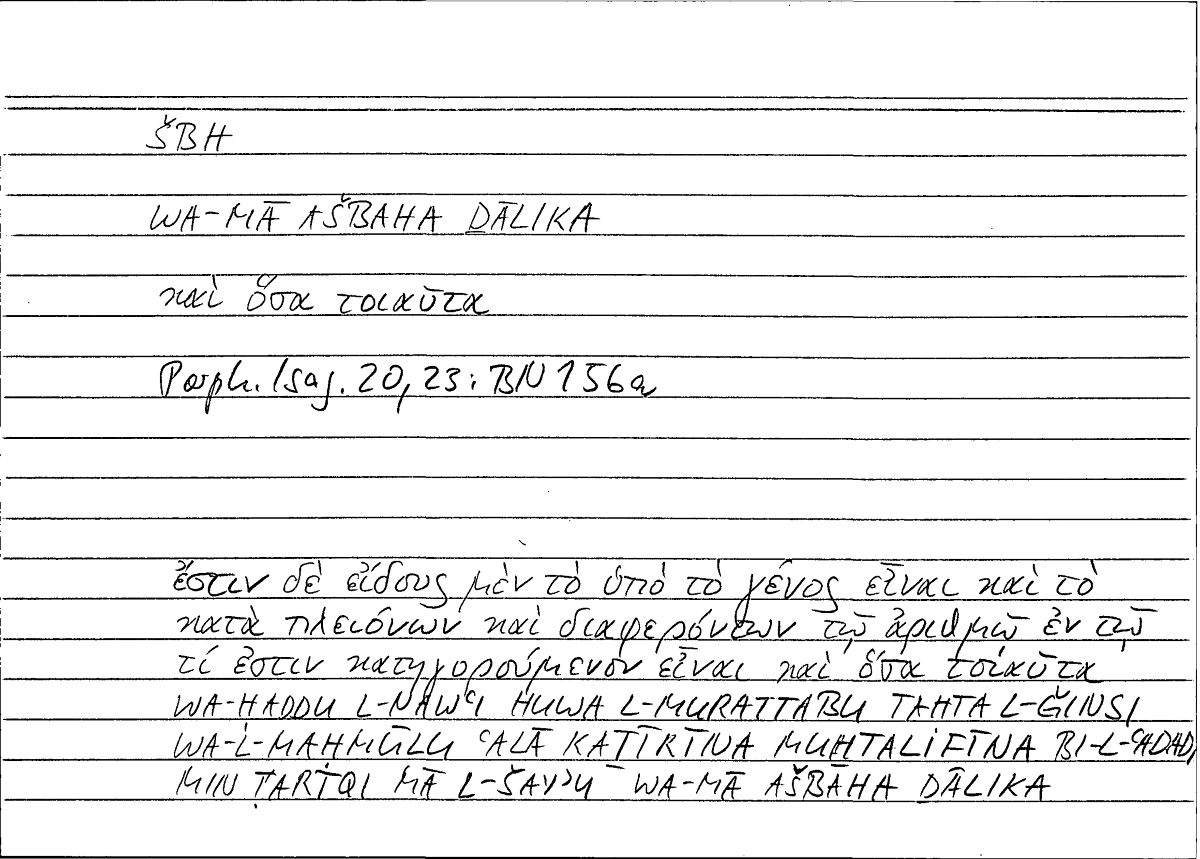 ŠBH
WA-MĀ AŠBAHA ḎĀLIKA
καὶ ὅσα τοιαῦτα
Porph. Isag. 20, 23: BN 156a
ἔστιν δὲ εἴδους μὲν τὸ ὑπὸ τὸ γένος εἶναι καὶ τὸ
κατὰ πλειόνων καὶ διαφερόντων τῷ ἀριθμῷ ἐν τῷ
τί ἐστιν κατηγορούμενον εἶναι καὶ ὅσα τοιαῦτα
WA-ḤADDU L-NAWʿI HUWA L-MURATTABU TAḤTA L-ǦINSI
WA-L-MAḤMŪLU ʿALĀ KAṮĪRĪNA MUḪTALIFĪNA BI-L-ʿADADI
MIN ṬARĪQI MĀ L-ŠAYʾU WA-MĀ AŠBAHA ḎĀLIKA